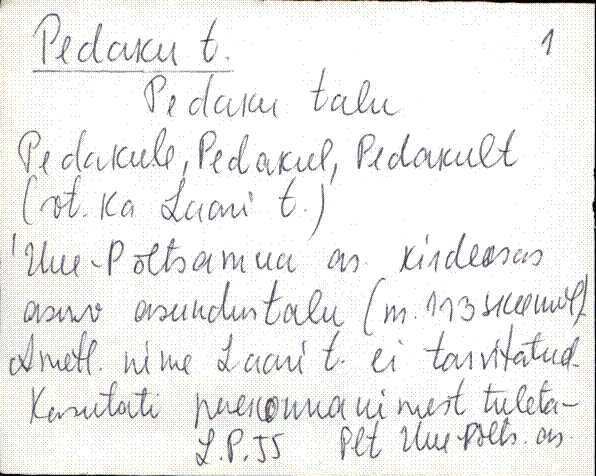 Pedaku t. 1
Pedaku talu
Pedakule, Pedakul, Pedakult
(vt. ka Laari t.)
Uue-Põltsamaa as. kirdeosas
asuv asundustalu (m. 113
Ametl. nime Laari t. ei tarvitatud.
Kasutati perekonnanimest tuleta-
L.P.55 Plt Uue-Põlts. as.